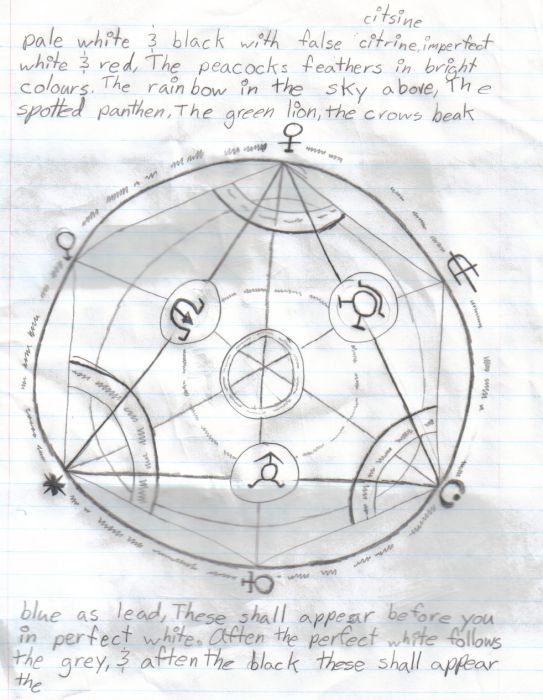 citsine
pale white & black with false citrine, imperfect
white & red, The peacocks feathers in bright
colours. The rainbow in the sky above, The
spotted panther, The green lion, the crows beak
blue as lead, These shall appear before you
in perfect white. After the perfect white follows
the grey, & after the black these shall appear
the